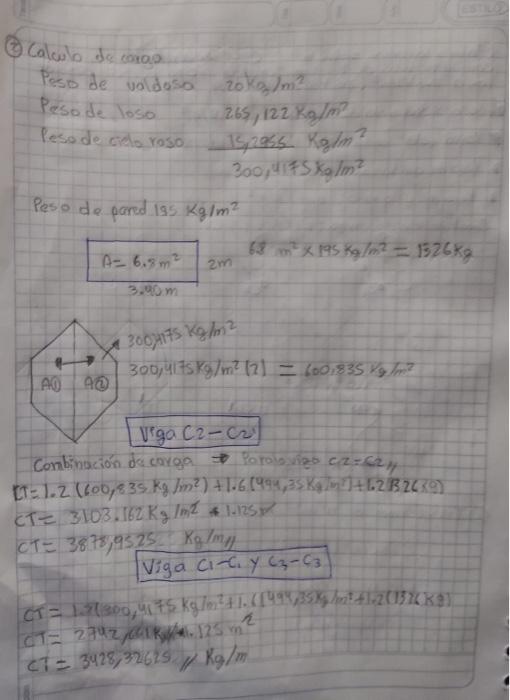 ESTILO
② Calculo de carga
Peso de valdosa 20 Kg/m²
Peso de losa 265,122 Kg/m²
Peso de cielo raso 15,2955 Kg/m²
300,4175 Kg/m²
Peso de pared 195 Kg/m²
A= 6.8 m² 2m 6.8 m² x 195 Kg/m² = 1326 Kg
3.40 m
300,4175 Kg/m²
A① A② 300,4175 Kg/m² (2) = 600,835 Kg/m²
Viga C2-C2
Combinación de carga ⇒ Para la viga C2-C2 //
CT= 1.2 (600,835 Kg/m²) + 1.6 (494,35 Kg/m²) + 1.2 (1326 Kg)
CT= 3103.162 Kg/m² * 1.125
CT= 3878,9525 Kg/m //
Viga C1-C1 y C3-C3
CT= 1.2 (300,4175 Kg/m² + 1.6 (494,35 Kg/m² + 1.2 (1326 Kg)
CT= 1.125 m²
CT= 3428,32625 // Kg/m